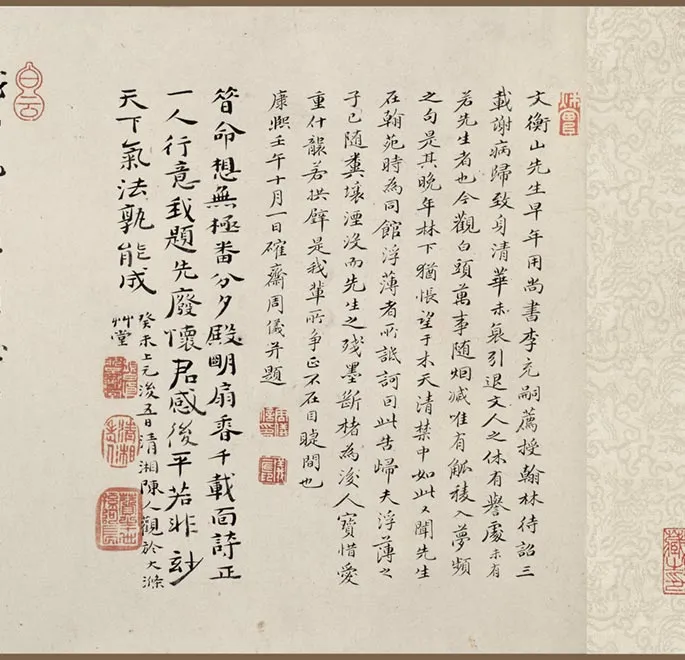 文衡山先生早年用尚書李充嗣薦授翰林待詔三
載謝病歸致身清華未衰引退文人之休有譽處未有
若先生者也今觀白頭萬事随烟滅唯有觚稜入夢頻
之句是其晚年林下猶悵望于木天清禁中如此又聞先生
在翰苑時為同館浮薄者所詆訶曰此告歸夫浮薄之
子已随糞壤湮沒而先生之殘墨斷楮為後人寶惜愛
重什襲若拱璧是我輩所爭正不在目睫間也
康熙壬午十月一日確齋周儀并題
命想無極番分夕殿明扇香千載面詩正
一人行意我題先廢懷君感後平若非玅
天下氣法孰能成
癸未上元後五日清湘陳人觀於大滌
艸堂